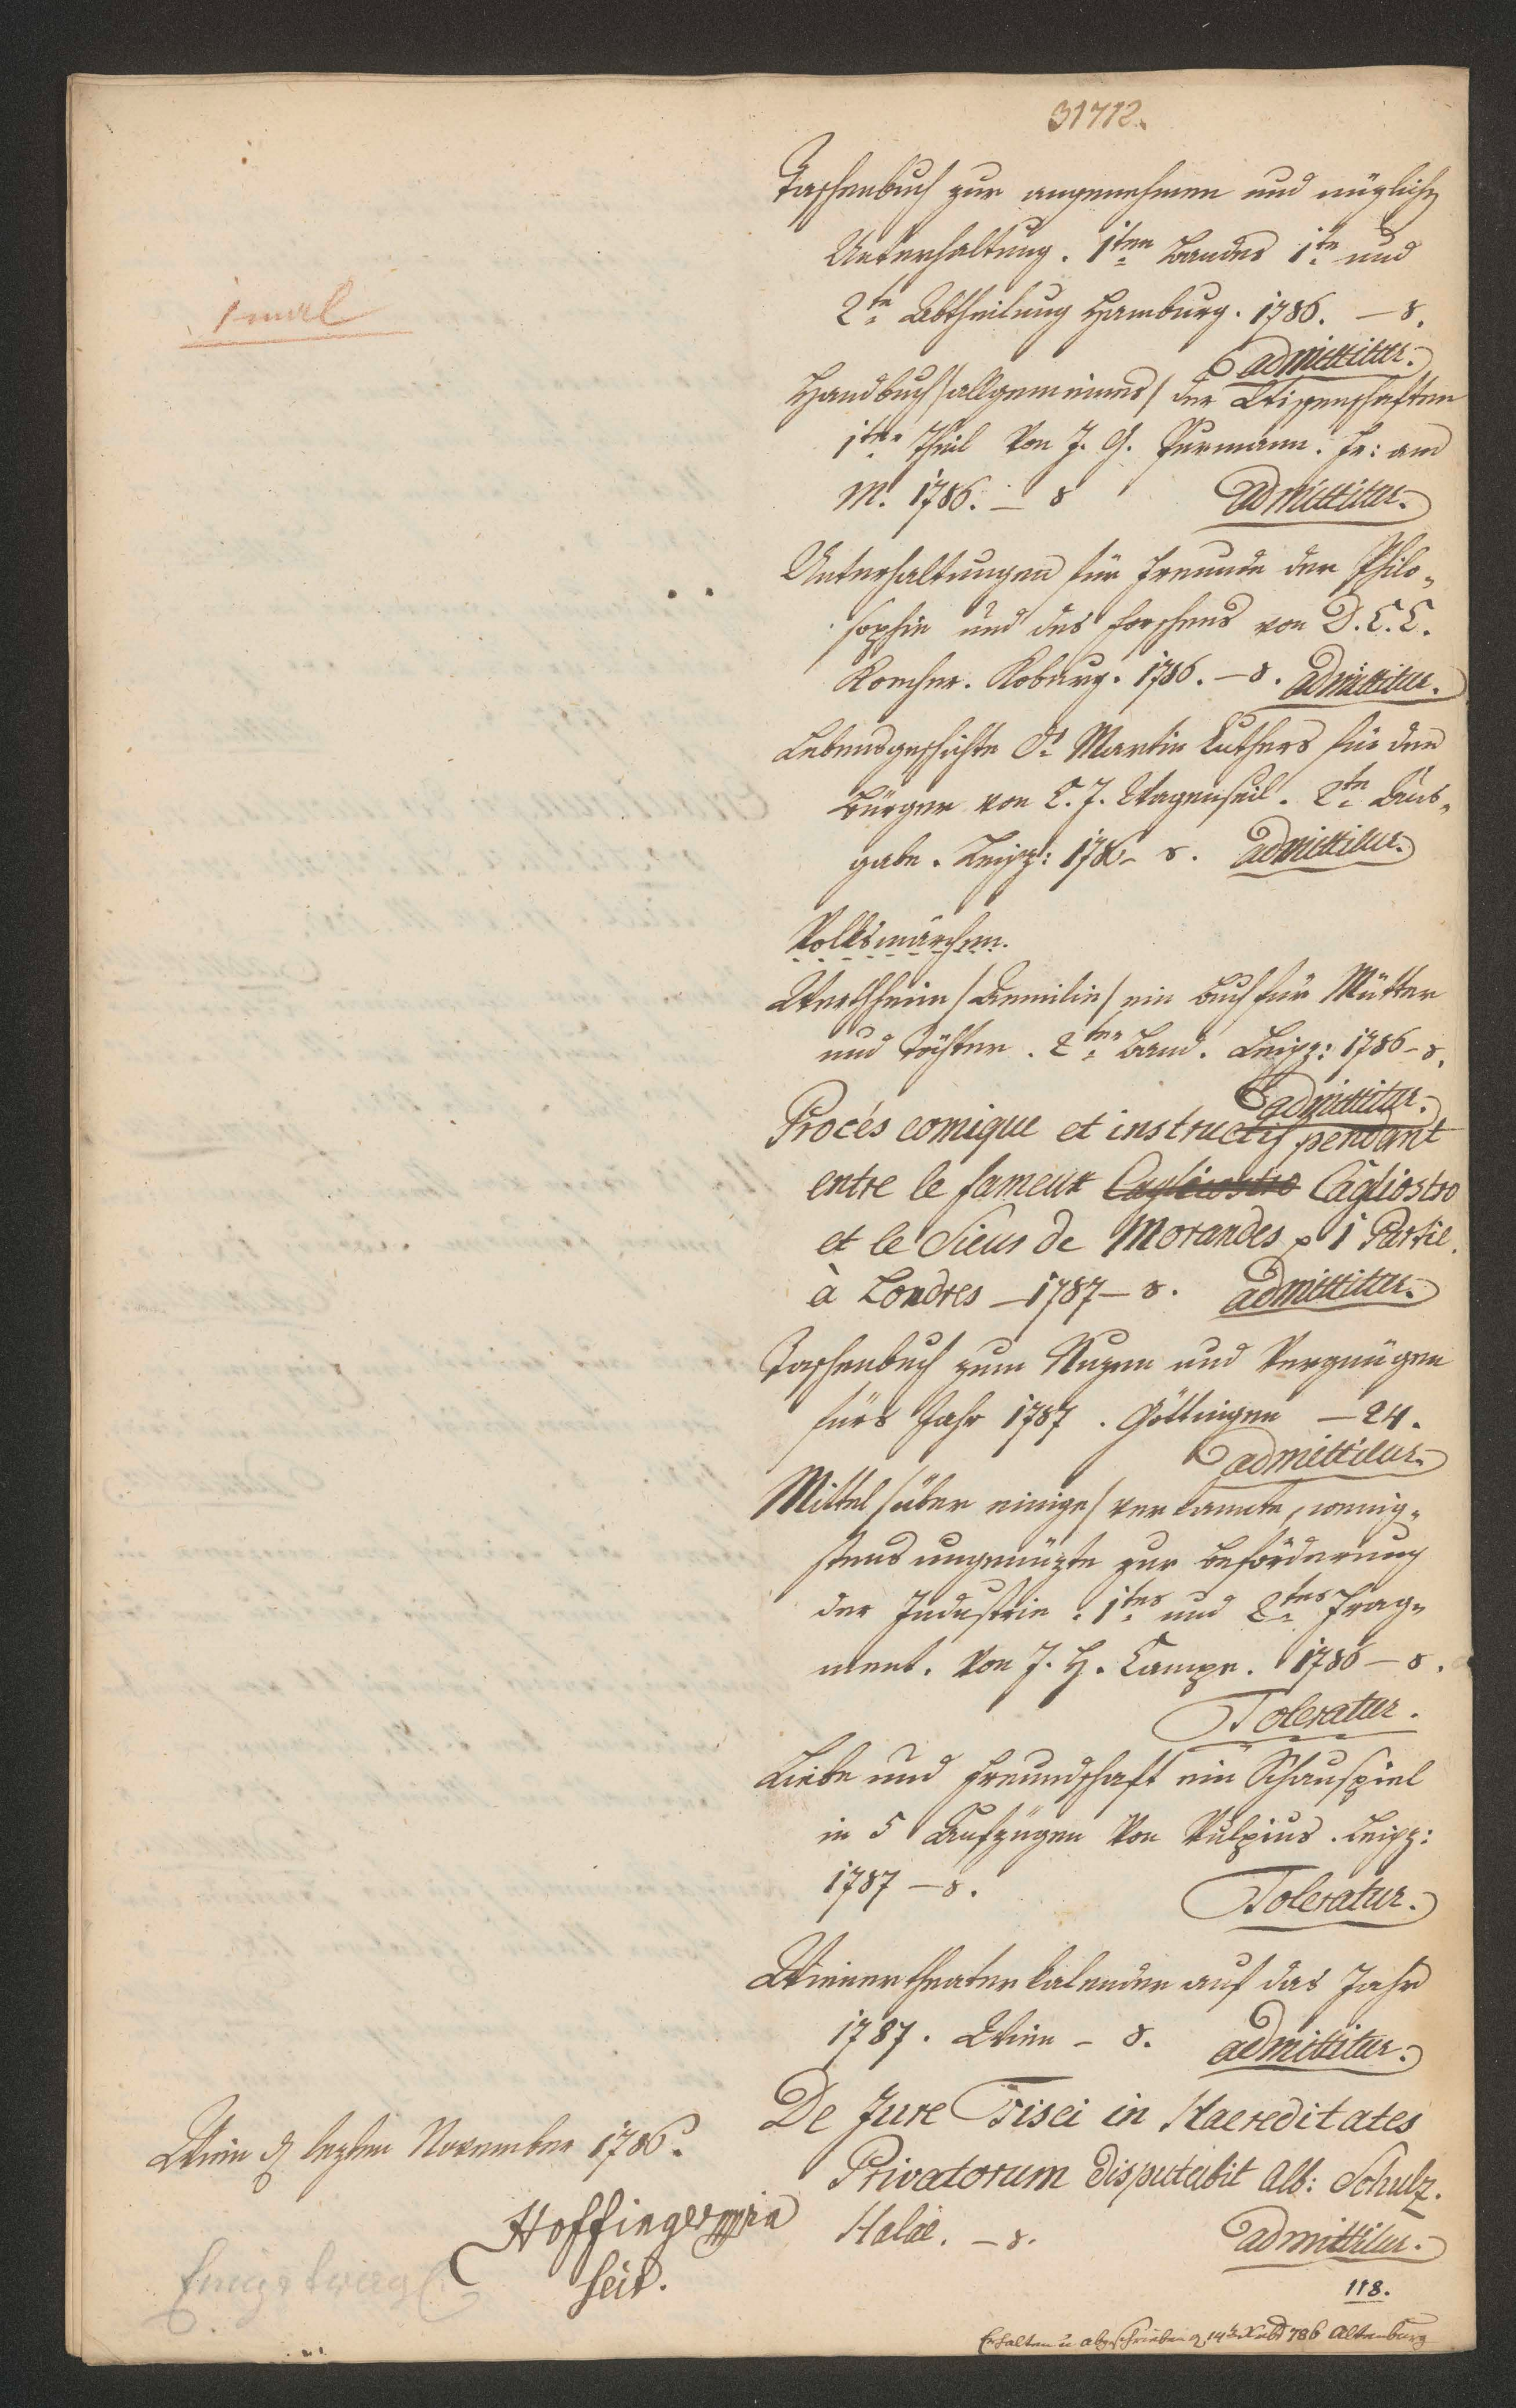 31712.
Taschenbuch zur angenehmen und nüzlichen
Unterhaltung. 1ten Bandes 1te und
2te Abtheilung Hamburg. 1786. – 8.
admittitur.
1mal
Handbuch /allgemeines/ der Wissenschaften
1ter Theil von J. G. Purmann. Fr: am
M. 1786. – 8 admittitur.
Unterhaltungen für Freunde der Philo-
sophie und des Forschens von D. C. C.
Koburg. 1786. – 8. admittitur.
Lebensgeschichte Dr. Martin Luthers für den
Bürger von C. J. Wagenseil. 2te Aus-
gabe. Leipz: 178 – 8. admittitur.
Volksmärchen.
Werthheim /Aemilie/ ein Buch für Mütter
und Töchter. 2ter Band. Leipz: 1786 – 8.
admittitur.
Procés comique et instructif pendant
entre le fameux Cagliostro Cagliostro
et le Sieur de Morandes 1 Partie.
à Londres – 1787 – 8. admittitur.
Taschenbuch zum Nuzen und Vergnügen
fürs Jahr 1787. Göttingen – 24.
admittitur.
Mittel /über einige/ verkannte, wenig-
stens ungenüzte zur Beförderung
der Industrie. 1tes und 2tes Frag-
ment. Von J. H. Campe. 1786 – 8.
Toleratur.
Liebe und Freundschaft ein Schauspiel
in 5 Aufzügen von Vulpius. Leipz:
1787 – 8.
Toleratur.
Wienertheaterkalender auf das Jahr
1787. Wien – 8. admittitur.
De Jure Fisci in Haereditates
Privatorum disputabit Alb: Schulz.
Halae. – 8. admittitur.
118.
Wien d lezten November 1786.
Hoffinger mpria
Erhalten u abgeschrieben d 14t Xbr 786 Altenburg